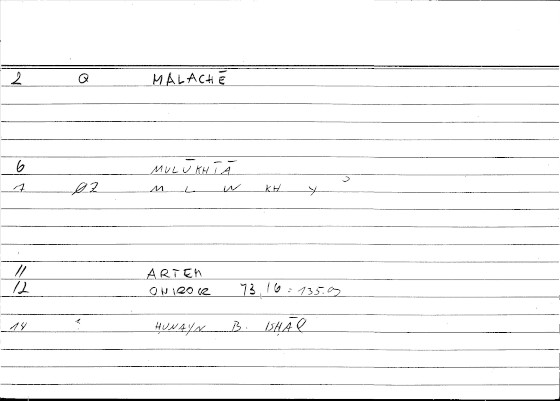 2 Q MALACHĒ
6 MULŪKHĪĀ
1 02 M L W KH Y ʾ
11 ARTEM
12 ONIROCR 73,16 = 135.9
14 ḤUNAYN B. ISḤĀQ